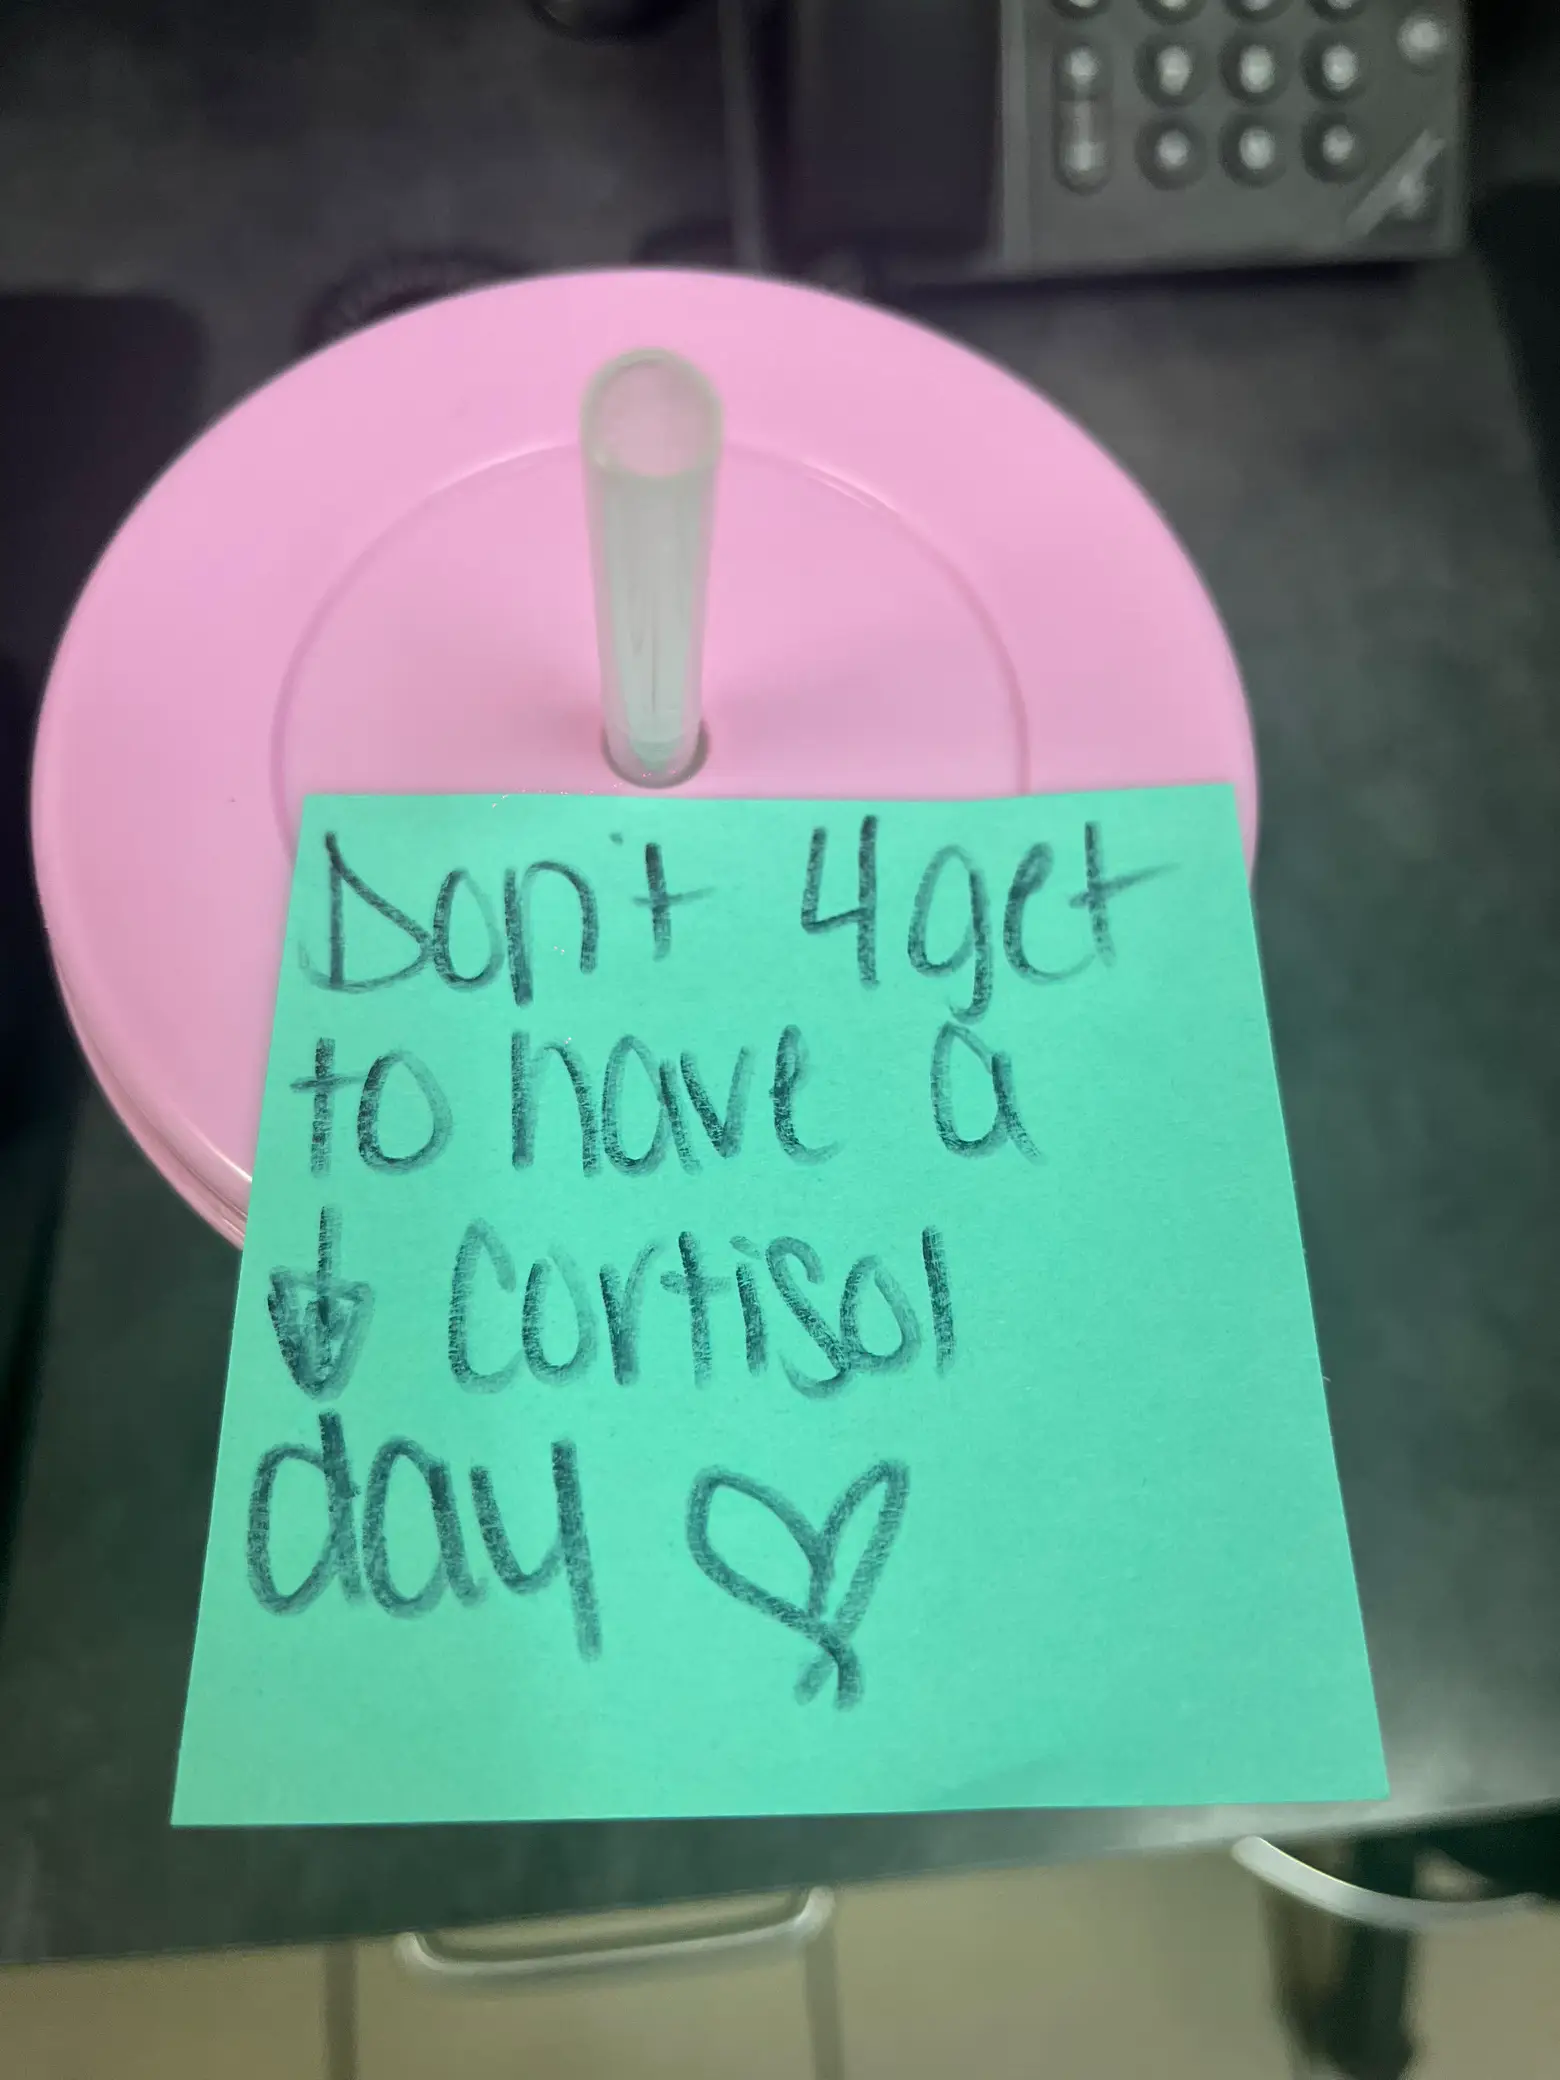 Don't 4get
to have a
↓ cortisol
day ♡